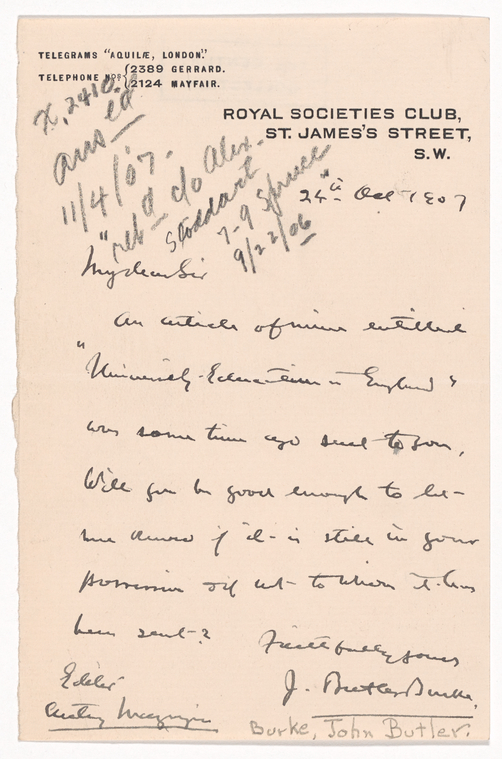 TELEGRAMS "AQUILÆ, LONDON."
TELEPHONE Nos. { 2389 GERRARD.
2124 MAYFAIR.
ROYAL SOCIETIES CLUB,
ST. JAMES'S STREET,
S.W.
X, 2410.
ansed
11/4/07.
"retd c/o Alex.
Stoddart
7-9 Spruce"
9/22/06
24th Oct 1907
My dear Sir
An article of mine entitled
"University Education in England"
was some time ago sent to you,
Will you be good enough to let
me know if it is still in your
possession or if not to whom it has
been sent?
Faithfully yours
J. Butler Burke.
Editor
Century Magazine
Burke, John Butler.